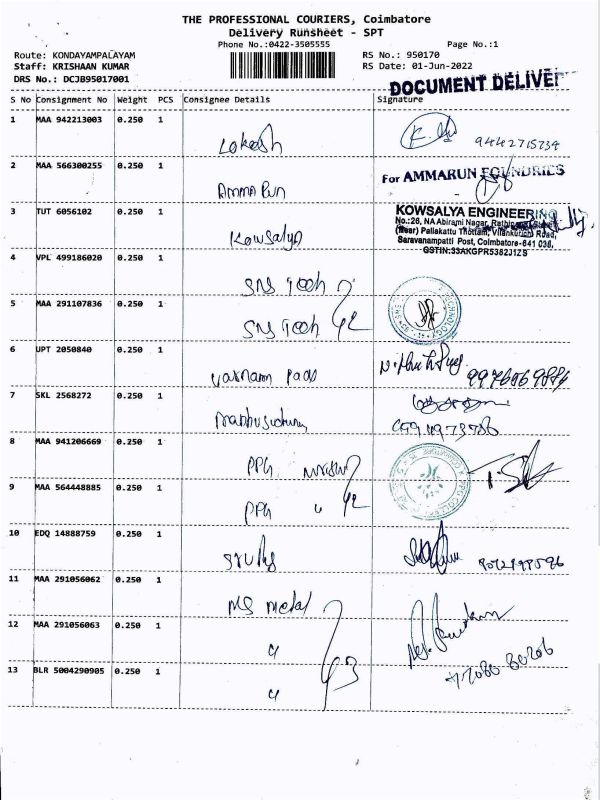 THE PROFESSIONAL COURIERS, Coimbatore
Delivery Runsheet - SPT
Phone No.:0422-3505555
Page No.:1
Route: KONDAYAMPALAYAM
RS No.: 950170
Staff: KRISHAAN KUMAR
RS Date: 01-Jun-2022
DRS No.: DCJB95017001
DOCUMENT DELIVE
S No Consignment No Weight PCS Consignee Details Signature
1 MAA 942213003 0.250 1
Lokesh
9442715734
2 MAA 566300255 0.250 1
For AMMARUN FOUNDRIES
Ammarun
3 TUT 6056102 0.250 1
KOWSALYA ENGINEERING
No.:26, NA Abirami Nagar,
(Near) Pallakattu Thottam, Vilankurichi Road,
Saravanampatti Post, Coimbatore-641 038,
GSTIN:33AKGPR5382J1ZS
Kowsalya
4 VPL 499186020 0.250 1
SNS Tech
5 MAA 291107836 0.250 1
SNS Tech
6 UPT 2050840 0.250 1
Varnam Pads
7 SKL 2568272 0.250 1
8 MAA 941206669 0.250 1
PPG
9 MAA 564448885 0.250 1
PPG "
10 EDQ 14888759 0.250 1
11 MAA 291056062 0.250 1
MS Metal
12 MAA 291056063 0.250 1
"
13 BLR 5004290905 0.250 1
"